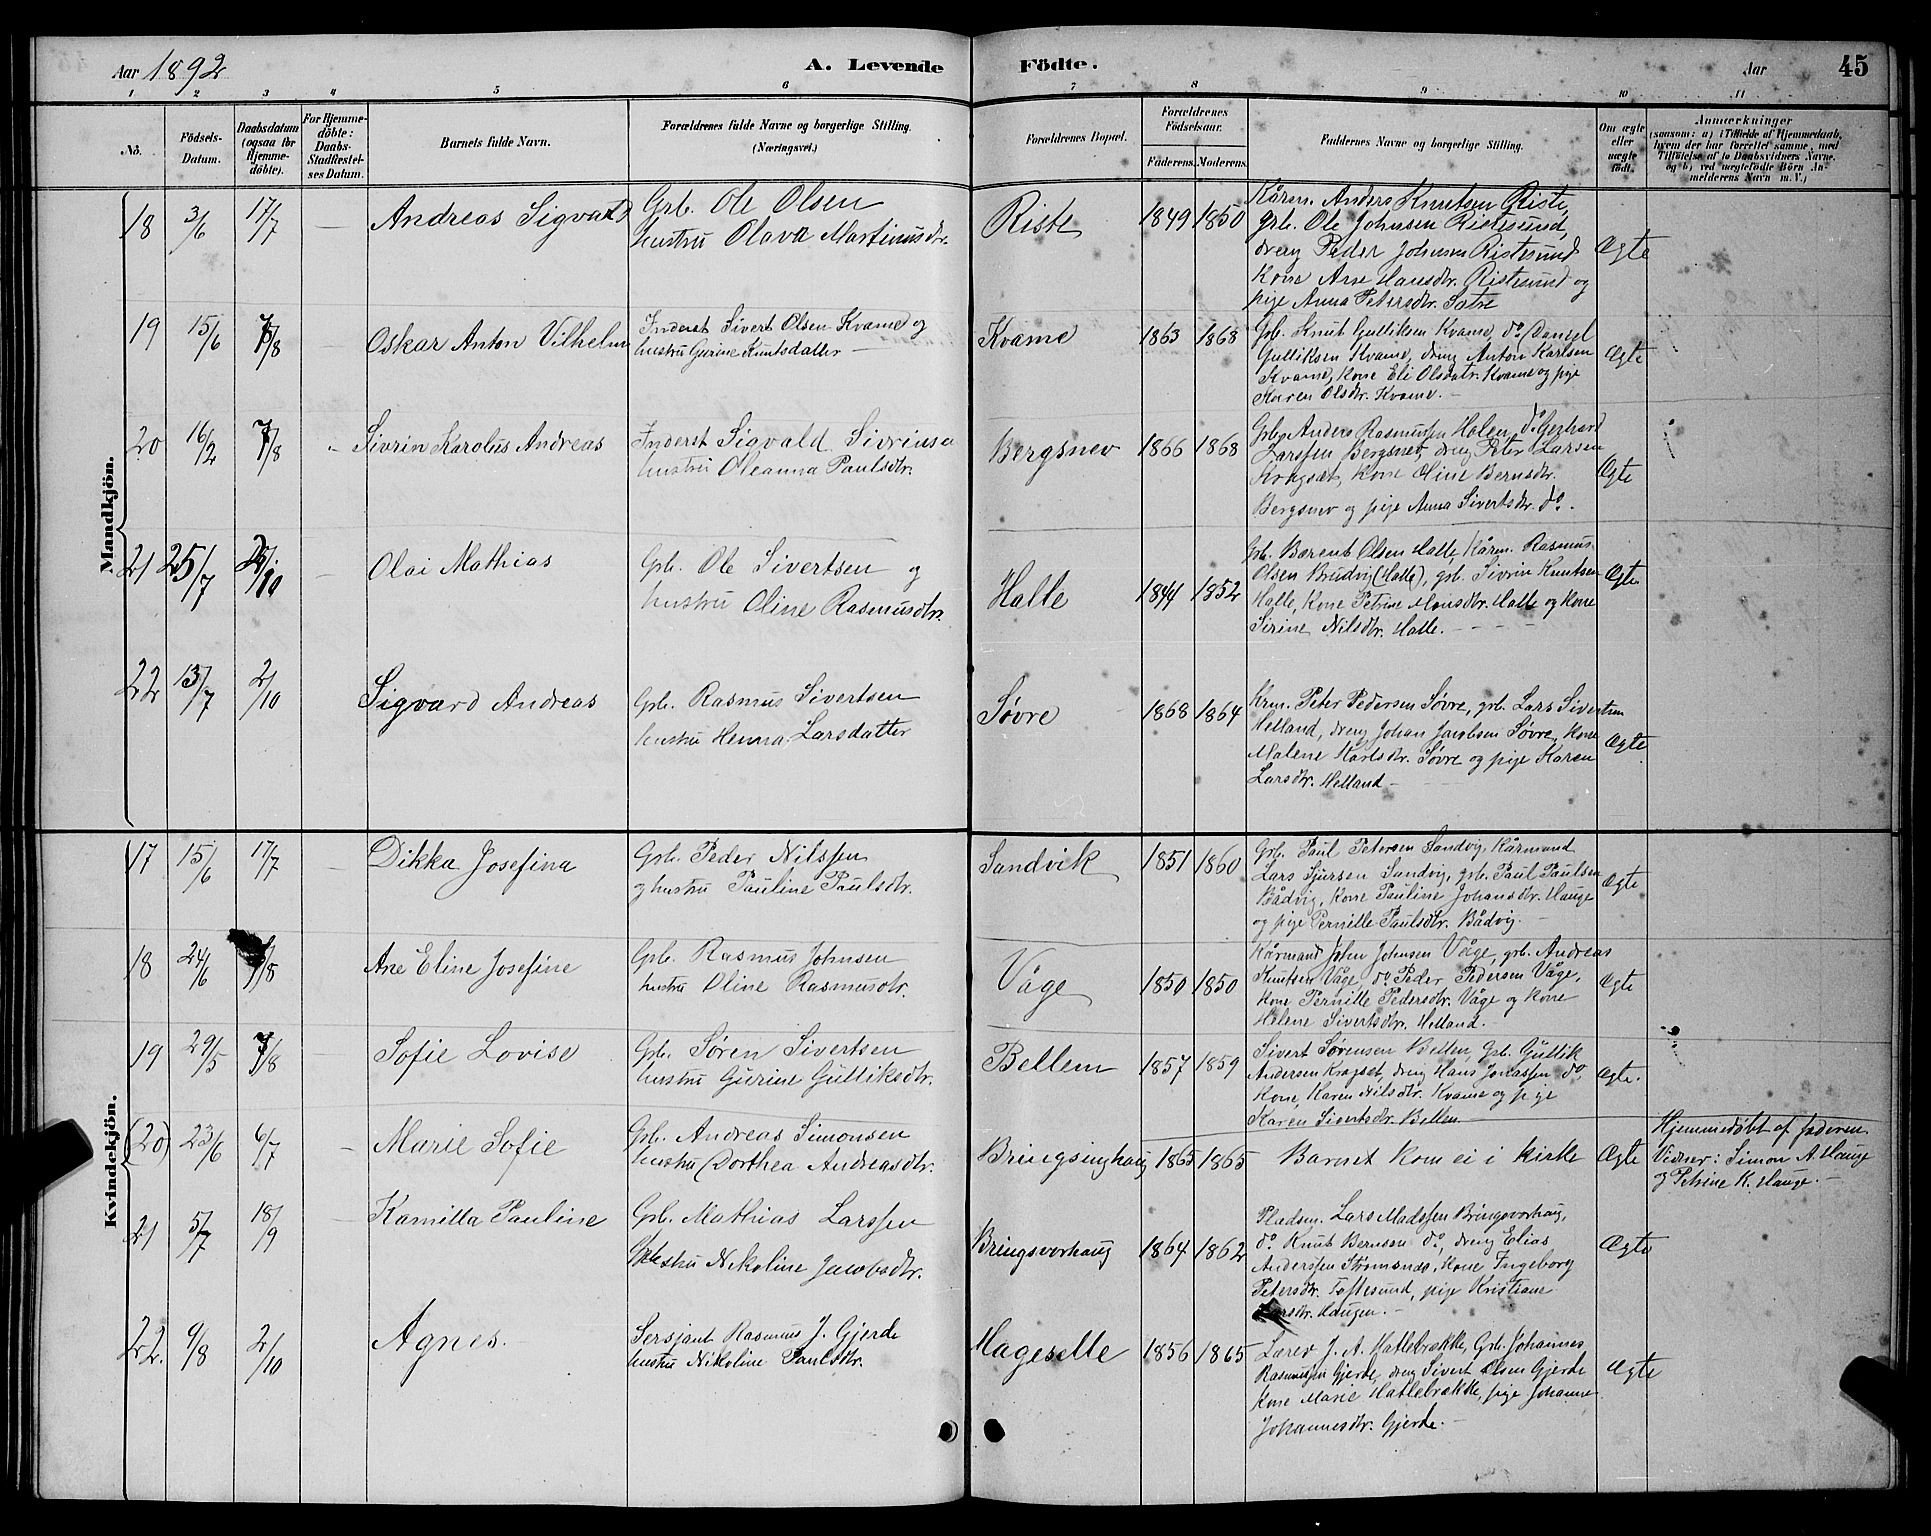 Aar 1892
A. Levende
Födte.
Aar
45
1 2 3 4 5 6 7 8 9 10 11
No.
Födsels-
Datum.
Daabsdatum
(ogsaa for
Hjemme-
döbte).
For Hjemme-
döbte:
Daabs-
Stadfæstel-
ses Datum.
Barnets fulde Navn.
Forældrenes fulde Navne og borgerlige Stilling.
(Næringsvei.)
Forældrenes Bopæl.
Forældrenes
Födselsaar.
Faderens. Moderens.
Faddernes Navne og borgerlige Stilling.
Om ægte
eller
uægte
födt.
Anmærkninger
(saasom: a) i Tilfælde af Hjemmedaab,
hvem der har forrettet samme, med
Tilföielse af to Daabsvidners Navne,
og b) ved uægtefödte Börn An-
melderens Navn m. V.)
Mandkjön.
18 3/6 17/7 — Andreas Sigvald
Grb. Ole Olsen
hustru Olava Martinusdtr.
Riste 1849 1850
Kårm. Anders Knutsen Riste,
grb. Ole Johnsen Ristesund,
dreng Peder Johnsen Ristesund
Kone Ane Hansdtr. Ristesund og
pige Anna Petersdtr. Sætre
Ægte
19 15/6 7/8 — Oskar Anton Vilhelm
Inderst Sivert Olsen Kvame og
hustru Gurine Knutsdatter —
Kvame 1863 1868
Grb. Knut Gulliksen Kvame, do Daniel
Gulliksen Kvame, dreng Anton Karlsen
Kvame, Kone Eli Olsdatr. Kvame og pige
Karen Olsdtr. Kvame. —
Ægte
20 16/2 7/8 - Sivrin Karolus Andreas
Inderst Sigvald Sivrinsen
hustru Oleanna Paulsdtr.
Bergsnev 1866 1868
Grb. Anders Rasmussen Holen, do Gerhard
Larssen Bergsnev, dreng Peter Larsen
Kragsæt, Kone Oline Berntsdtr.
Bergsnev og pige Anna Sivertsdtr. do.
Ægte
21 25/7 2/10 — Olai Mathias
Grb. Ole Sivertsen og
hustru Oline Rasmusdtr.
Halle 1844 1852
Grb. Berent Olsen Halle, Kårm. Rasmus
Olsen Brudvig (Halle), grb. Sivrin Knutsen
Halle, Kone Petrine Monsdtr. Halle og Kone
Sirine Nilsdtr. Halle. - - - -
Ægte
22 13/7 2/10 Sigvard Andreas
Grb. Rasmus Sivertsen
hustru Henna Larsdatter
Søvre 1868 1864
Krm. Peter Pedersen Søvre, grb. Lars Sivertsen
Helland, dreng Johan Jacobsen Søvre, Kone
Malene Karlsdtr. Søvre og pige Karen
Larsdtr. Helland —
Ægte
Kvindekjön.
17 15/6 17/7 — Dikka Josefina
Grb. Peder Nilssen
og hustru Pauline Paulsdtr.
Sandvik 1851 1860
Grb. Paul Petersen Sandvig, Kårmand
Lars Sjursen Sandvig, grb. Paul Paulsen
Bådvig, Kone Pauline Johansdtr. Hauge
og pige Pernille Paulsdtr. Bådvig. —
Ægte
18 24/6 7/8 Ane Eline Josefine
Grb. Rasmus Johnsen
hustru Oline Rasmusdtr.
Våge 1850 1850
Kårmand John Johnsen Våge, grb. Andreas
Knutsen Våge, do Peder Pedersen Våge,
Kone Pernille Pedersdtr. Våge og Kone
Helene Sivertsdtr. Helland.
Ægte
19 29/5 7/8 — Sofie Lovise
Grb. Søren Sivertsen
hustru Gurine Gulliksdtr.
Bellem 1857 1859
Sivert Sørensen Bellen, Grb. Gullik
Andersen Kragset, dreng Hans Jonassen do
Kone, Karen Nilsdtr. Kvame og pige
Karen Sivertsdtr. Bellen
Ægte.
(20) 23/6 6/7 — Marie Sofie
Grb. Andreas Simonsen
hustru Dorthea Andreasdtr.
Bringsinghaug 1865 1865
Barnet kom ei i kirke
Ægte
Hjemmedøbt af faderen.
Vidner: Simon A. Hauge
og Petrine K. Hauge. —
21 5/7 18/9 — Kamilla Pauline
Grb. Mathias Larssen
hustru Nikoline Jacobsdtr.
Bringsvorhaug 1864 1862
Pladsm. Lars Madssen Bringsvorhaug,
do. Knut Bernsen do, dreng Elias
Anderssen Strömsnes, Kone Ingeborg
Petersdtr. Toftesund, pige Kristiane
Larsdtr. Haugen. —
Ægte
22. 9/8 2/10 Agnes.
Sersjant Rasmus J. Gjerde
hustru Nikoline Paulsdtr.
Hageselle 1856 1865
Lærer J. A. Hatlebrække, Grb. Johannes
Rasmussen Gjerde, dreng Sivert Olsen Gjerde
Kone Marie Hatlebrække, pige Johanne
Johannesdtr. Gjerde. —
Ægte